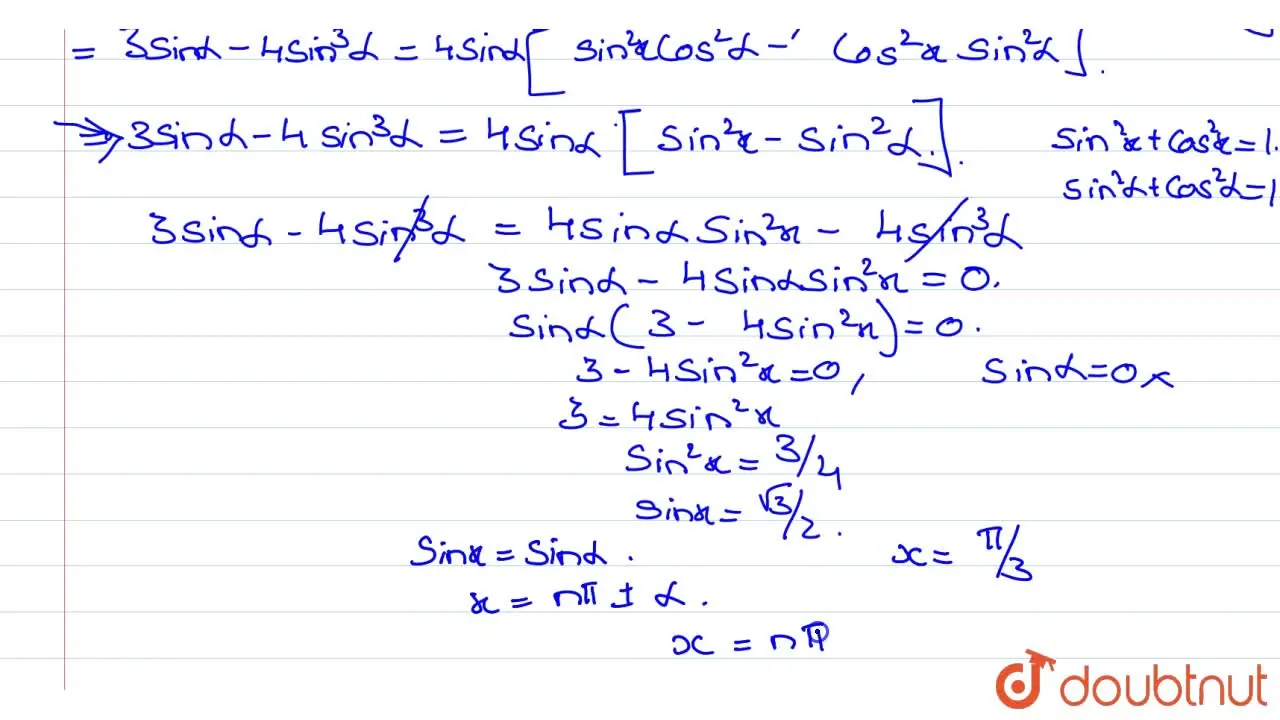 = 3sinα - 4sin³α = 4sinα[ sin²x cos²α - cos²x sin²α].
⇒ 3sinα - 4sin³α = 4sinα [sin²x - sin²α].
sin²x + cos²x = 1.
sin²α + cos²α = 1
3sinα - 4sin³α = 4sinα sin²x - 4sin³α
3sinα - 4sinα sin²x = 0.
sinα(3 - 4sin²x) = 0.
3 - 4sin²x = 0, sinα = 0 ×
3 = 4sin²x
sin²x = 3/4
sinx = √3/2.
sinx = sinα. x = π/3
x = nπ ± α.
x = nπ
doubtnut